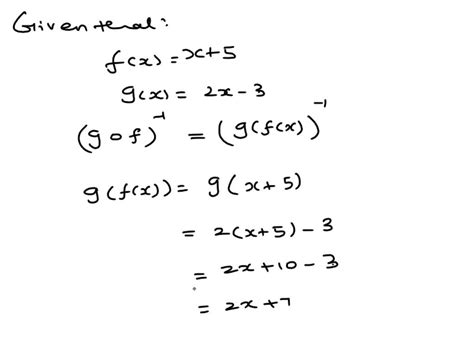 Given that:
f(x) = x+5
g(x) = 2x - 3
(g o f)⁻¹ = (g(f(x))⁻¹
g(f(x)) = g(x+5)
= 2(x+5) - 3
= 2x+10 - 3
= 2x+7